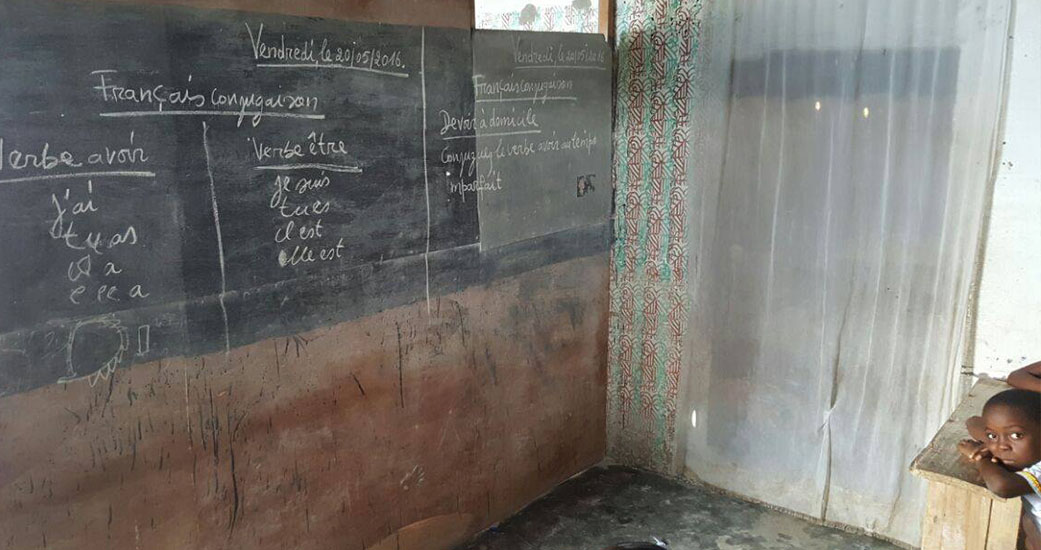 Vendredi, le 20/05/2016.
Français conjugaison
Verbe avoir
j'ai
tu as
il a
elle a
Verbe être
je suis
tu es
il est
elle est
Vendredi, le 20/05/2016
Français conjugaison
Devoir à domicile
Conjuguez le verbe avoir au temps
imparfait